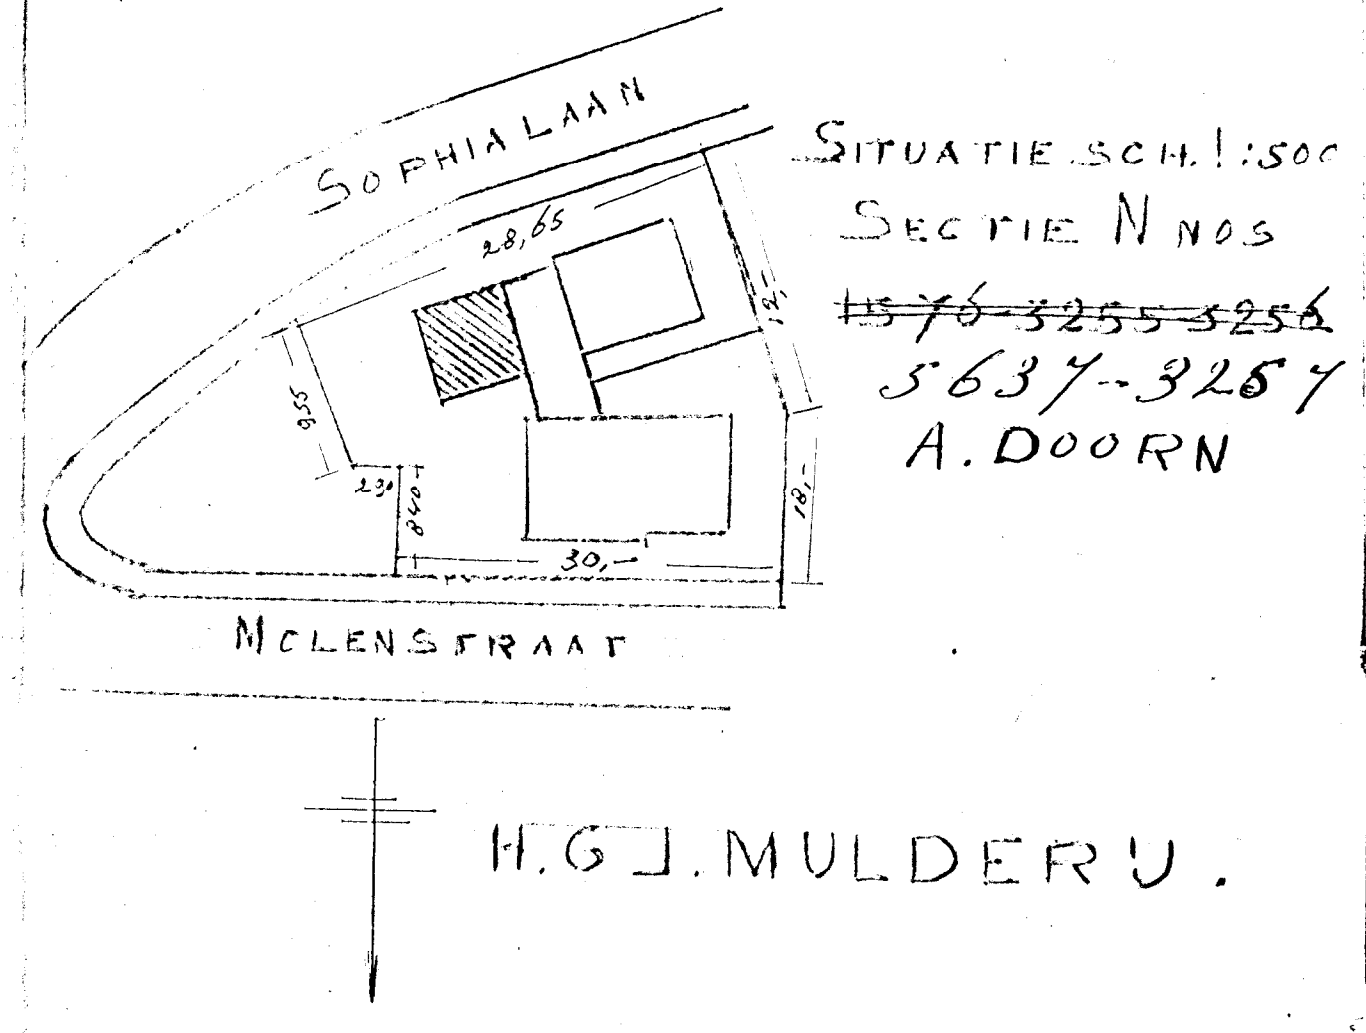 SOPHIALAAN
SITUATIE SCH. 1:500
SECTIE N NOS
1576-3255-3256
5637-3257
A. DOORN
28,65
12,-
955
290
840
18,-
30,-
MOLENSTRAAT
H.G.J. MULDERIJ.